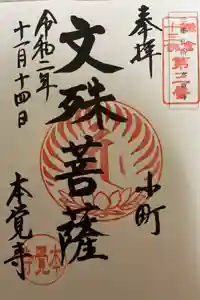 鎌倉
十三佛
第三番
奉拝
文殊菩薩
小町
令和二年
十一月十四日
本覚寺
本覺寺